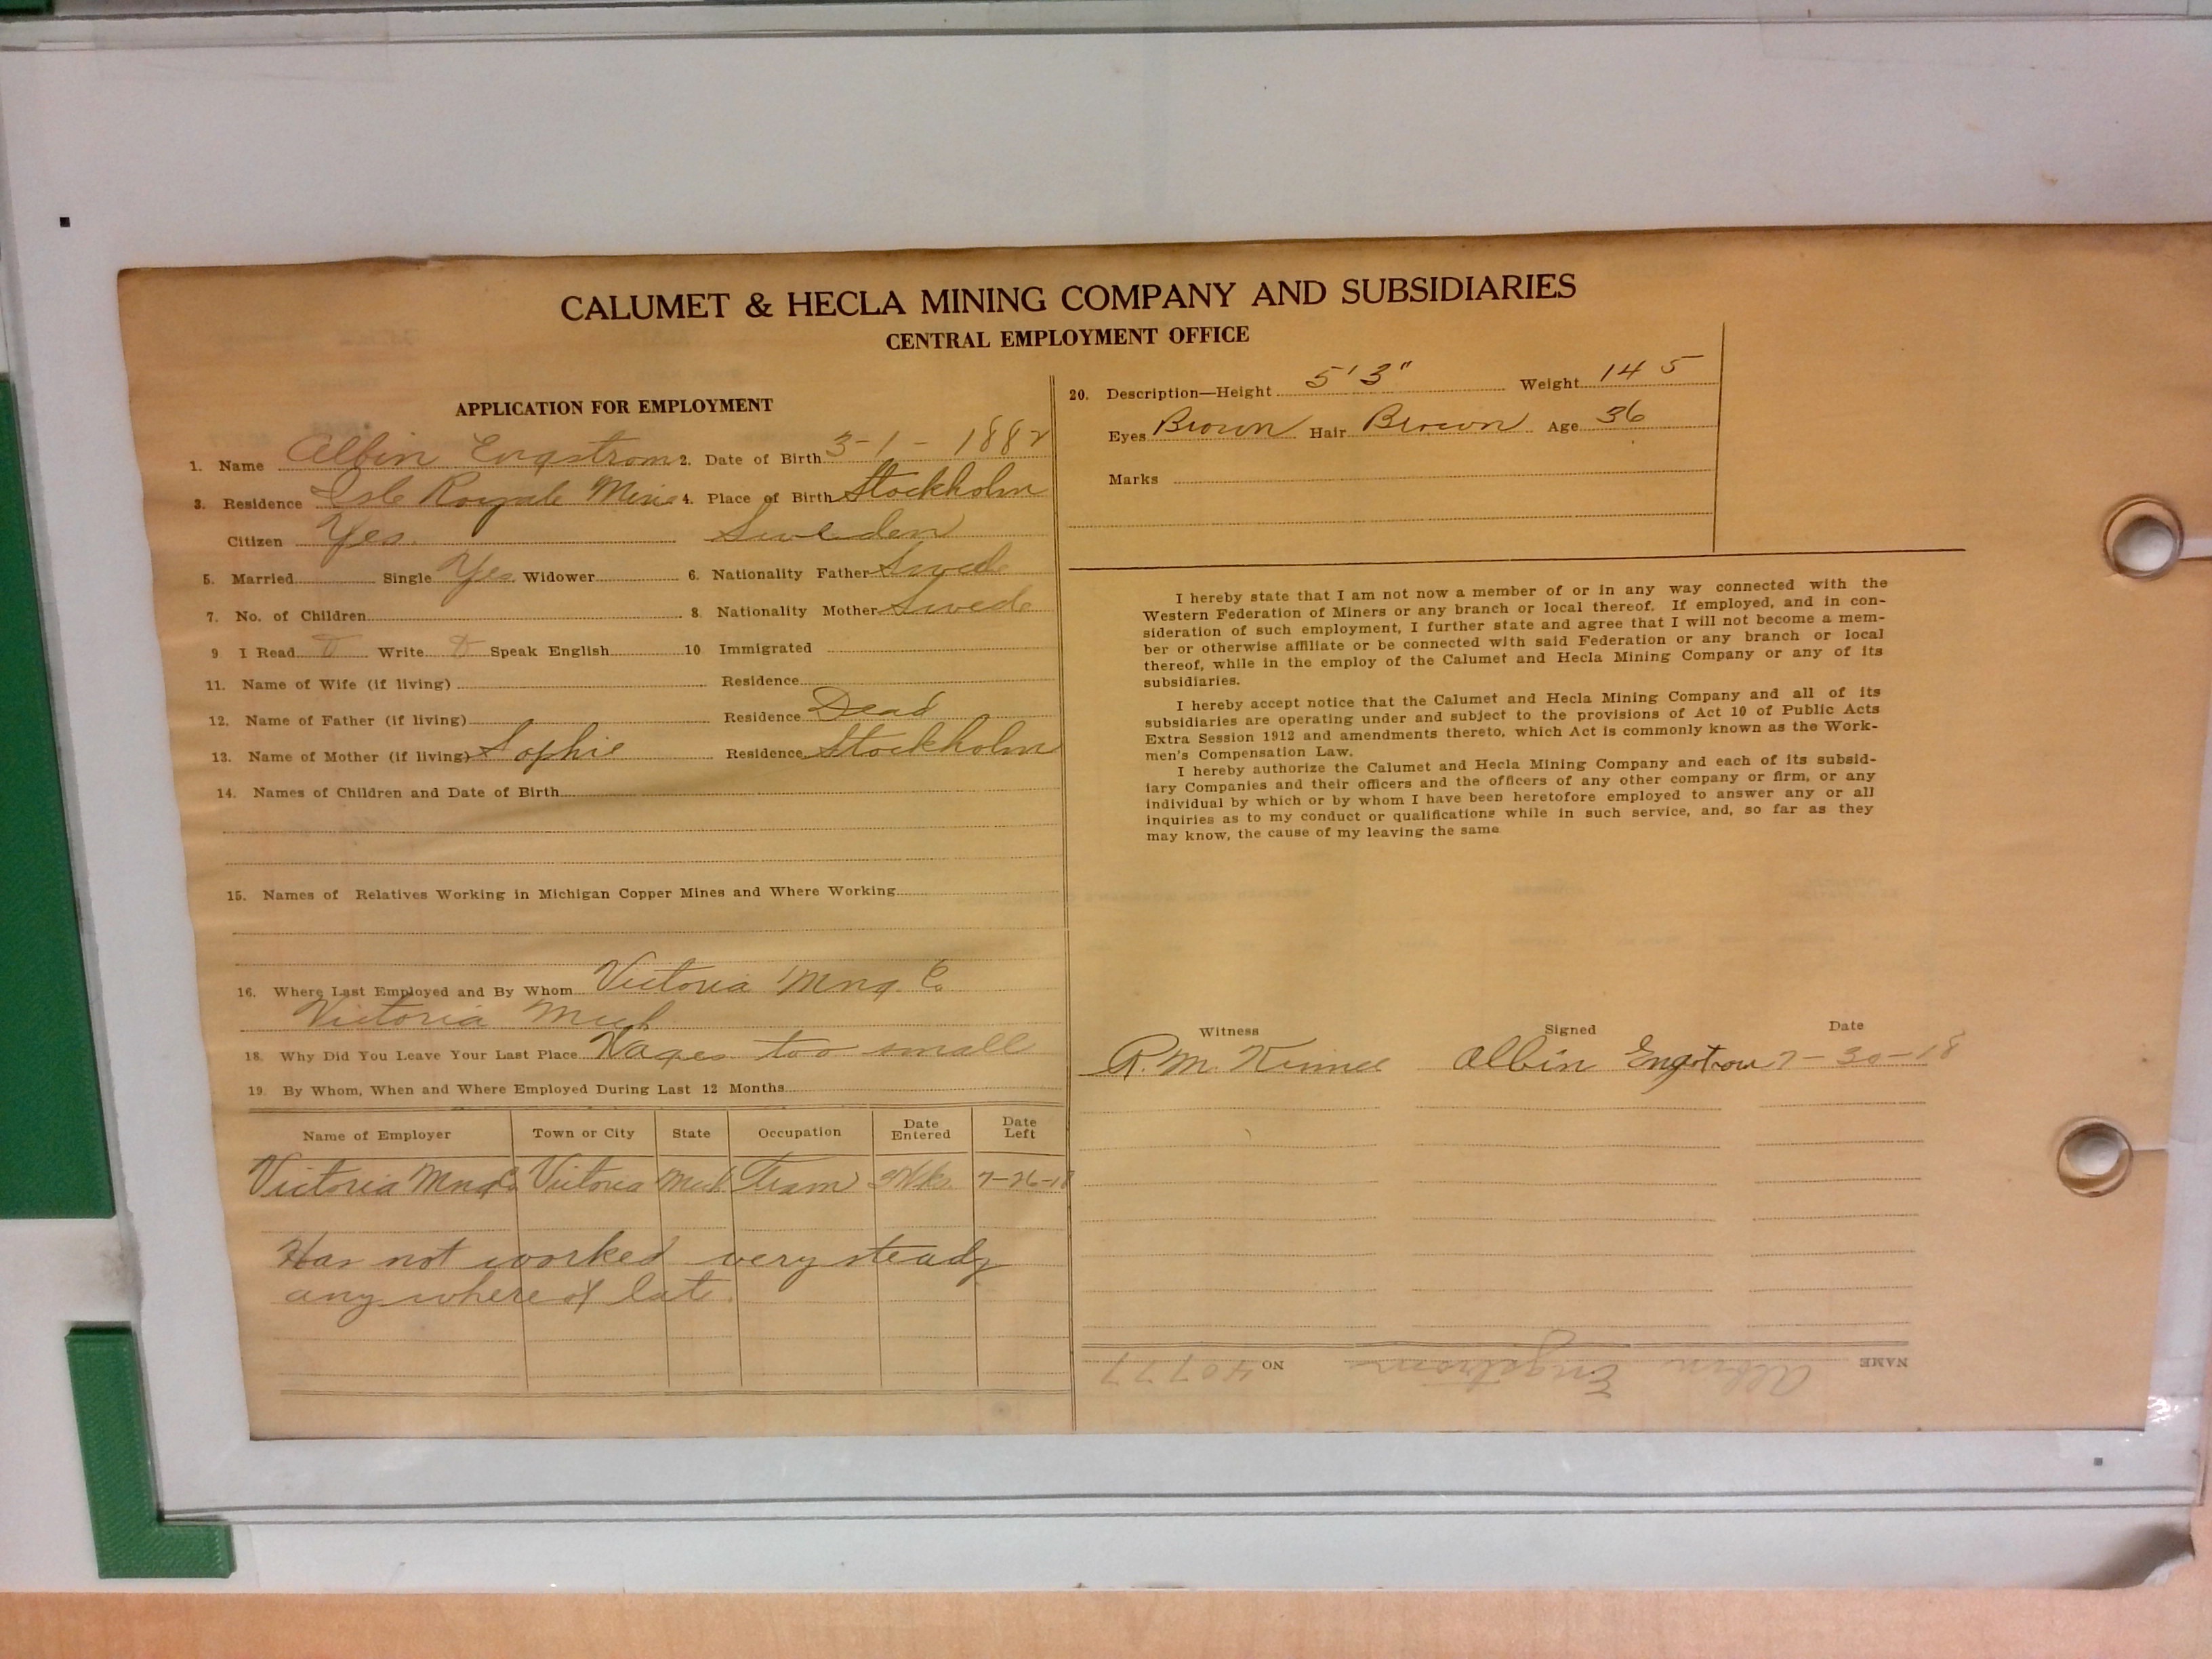 CALUMET & HECLA MINING COMPANY AND SUBSIDIARIES
CENTRAL EMPLOYMENT OFFICE
APPLICATION FOR EMPLOYMENT
1. Name Albin Engstrom 2. Date of Birth 3-1-1882
3. Residence Isle Royale Mine 4. Place of Birth Stockholm
Citizen Yes. Sweden
5. Married Single Yes Widower 6. Nationality Father Swede
7. No. of Children 8. Nationality Mother Swede
9. I Read Write Speak English 10 Immigrated
11. Name of Wife (if living) Residence
12. Name of Father (if living) Residence Dead
13. Name of Mother (if living) Sophie Residence Stockholm
14. Names of Children and Date of Birth
15. Names of Relatives Working in Michigan Copper Mines and Where Working
16. Where Last Employed and By Whom Victoria Mng. Co
Victoria Mich
18. Why Did You Leave Your Last Place Wages too small
19. By Whom, When and Where Employed During Last 12 Months
Name of Employer Town or City State Occupation Date Entered Date Left
Victoria Mng Co Victoria Mich Tram 3 Wks. 7-26-18
Has not worked very steady
any where of late.
20. Description—Height 5' 3" Weight 145
Eyes Brown Hair Brown Age 36
Marks
I hereby state that I am not now a member of or in any way connected with the
Western Federation of Miners or any branch or local thereof. If employed, and in con-
sideration of such employment, I further state and agree that I will not become a mem-
ber or otherwise affiliate or be connected with said Federation or any branch or local
thereof, while in the employ of the Calumet and Hecla Mining Company or any of its
subsidiaries.
I hereby accept notice that the Calumet and Hecla Mining Company and all of its
subsidiaries are operating under and subject to the provisions of Act 10 of Public Acts
Extra Session 1912 and amendments thereto, which Act is commonly known as the Work-
men's Compensation Law.
I hereby authorize the Calumet and Hecla Mining Company and each of its subsid-
iary Companies and their officers and the officers of any other company or firm, or any
individual by which or by whom I have been heretofore employed to answer any or all
inquiries as to my conduct or qualifications while in such service, and, so far as they
may know, the cause of my leaving the same
Witness Signed Date
R. M. Albin Engstrom 7-30-18
NAME Albin Engstrom NO 40777